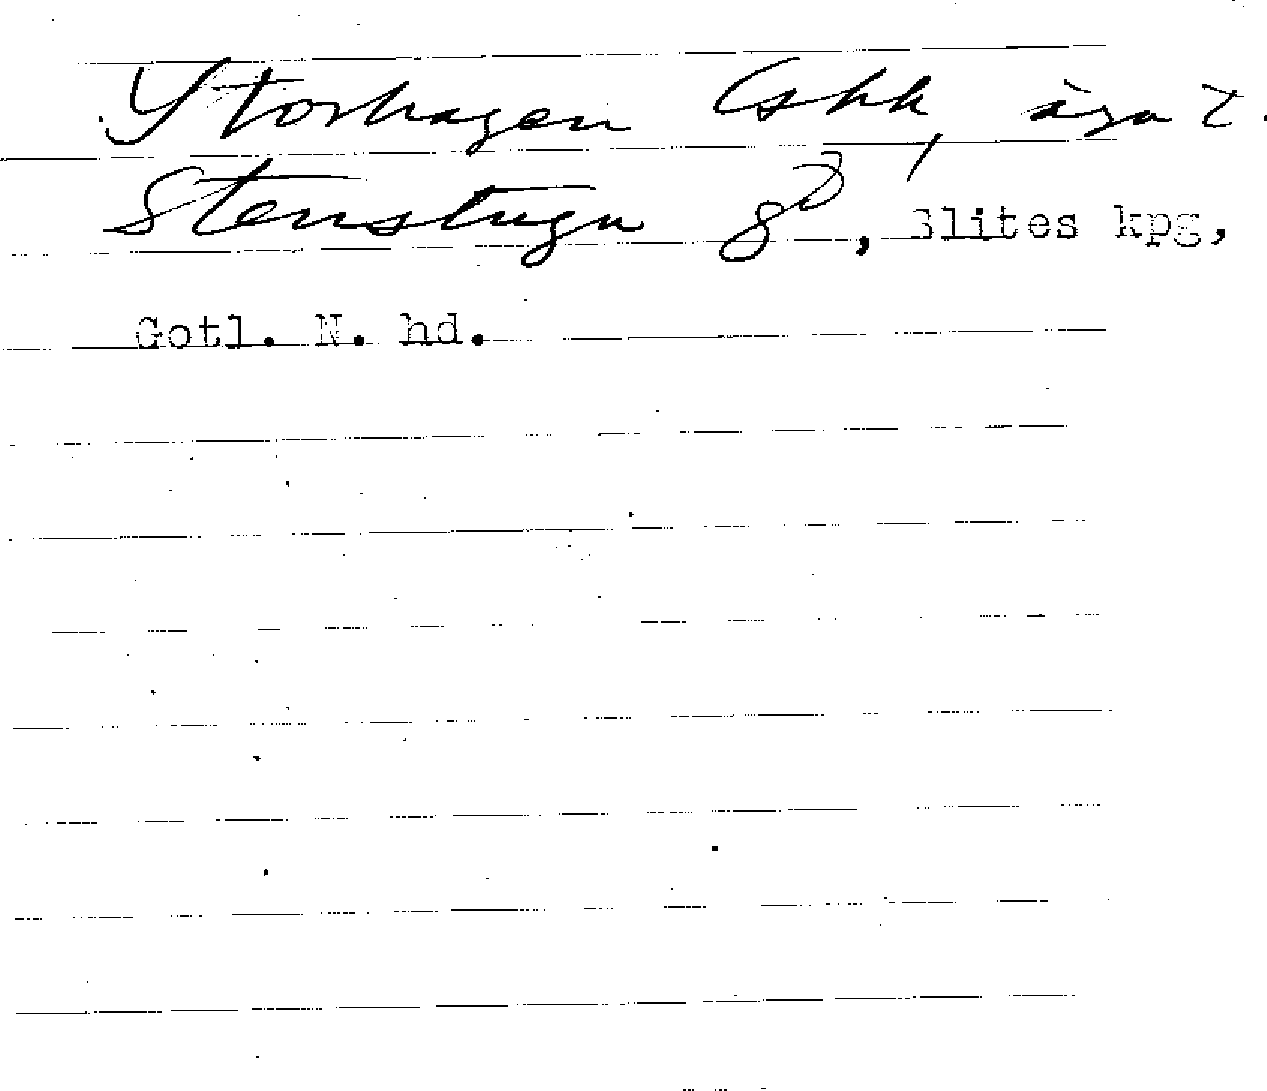 Storhagen äga t.
Stenstugu 8², Slites kpg,
Gotl. N. hd.